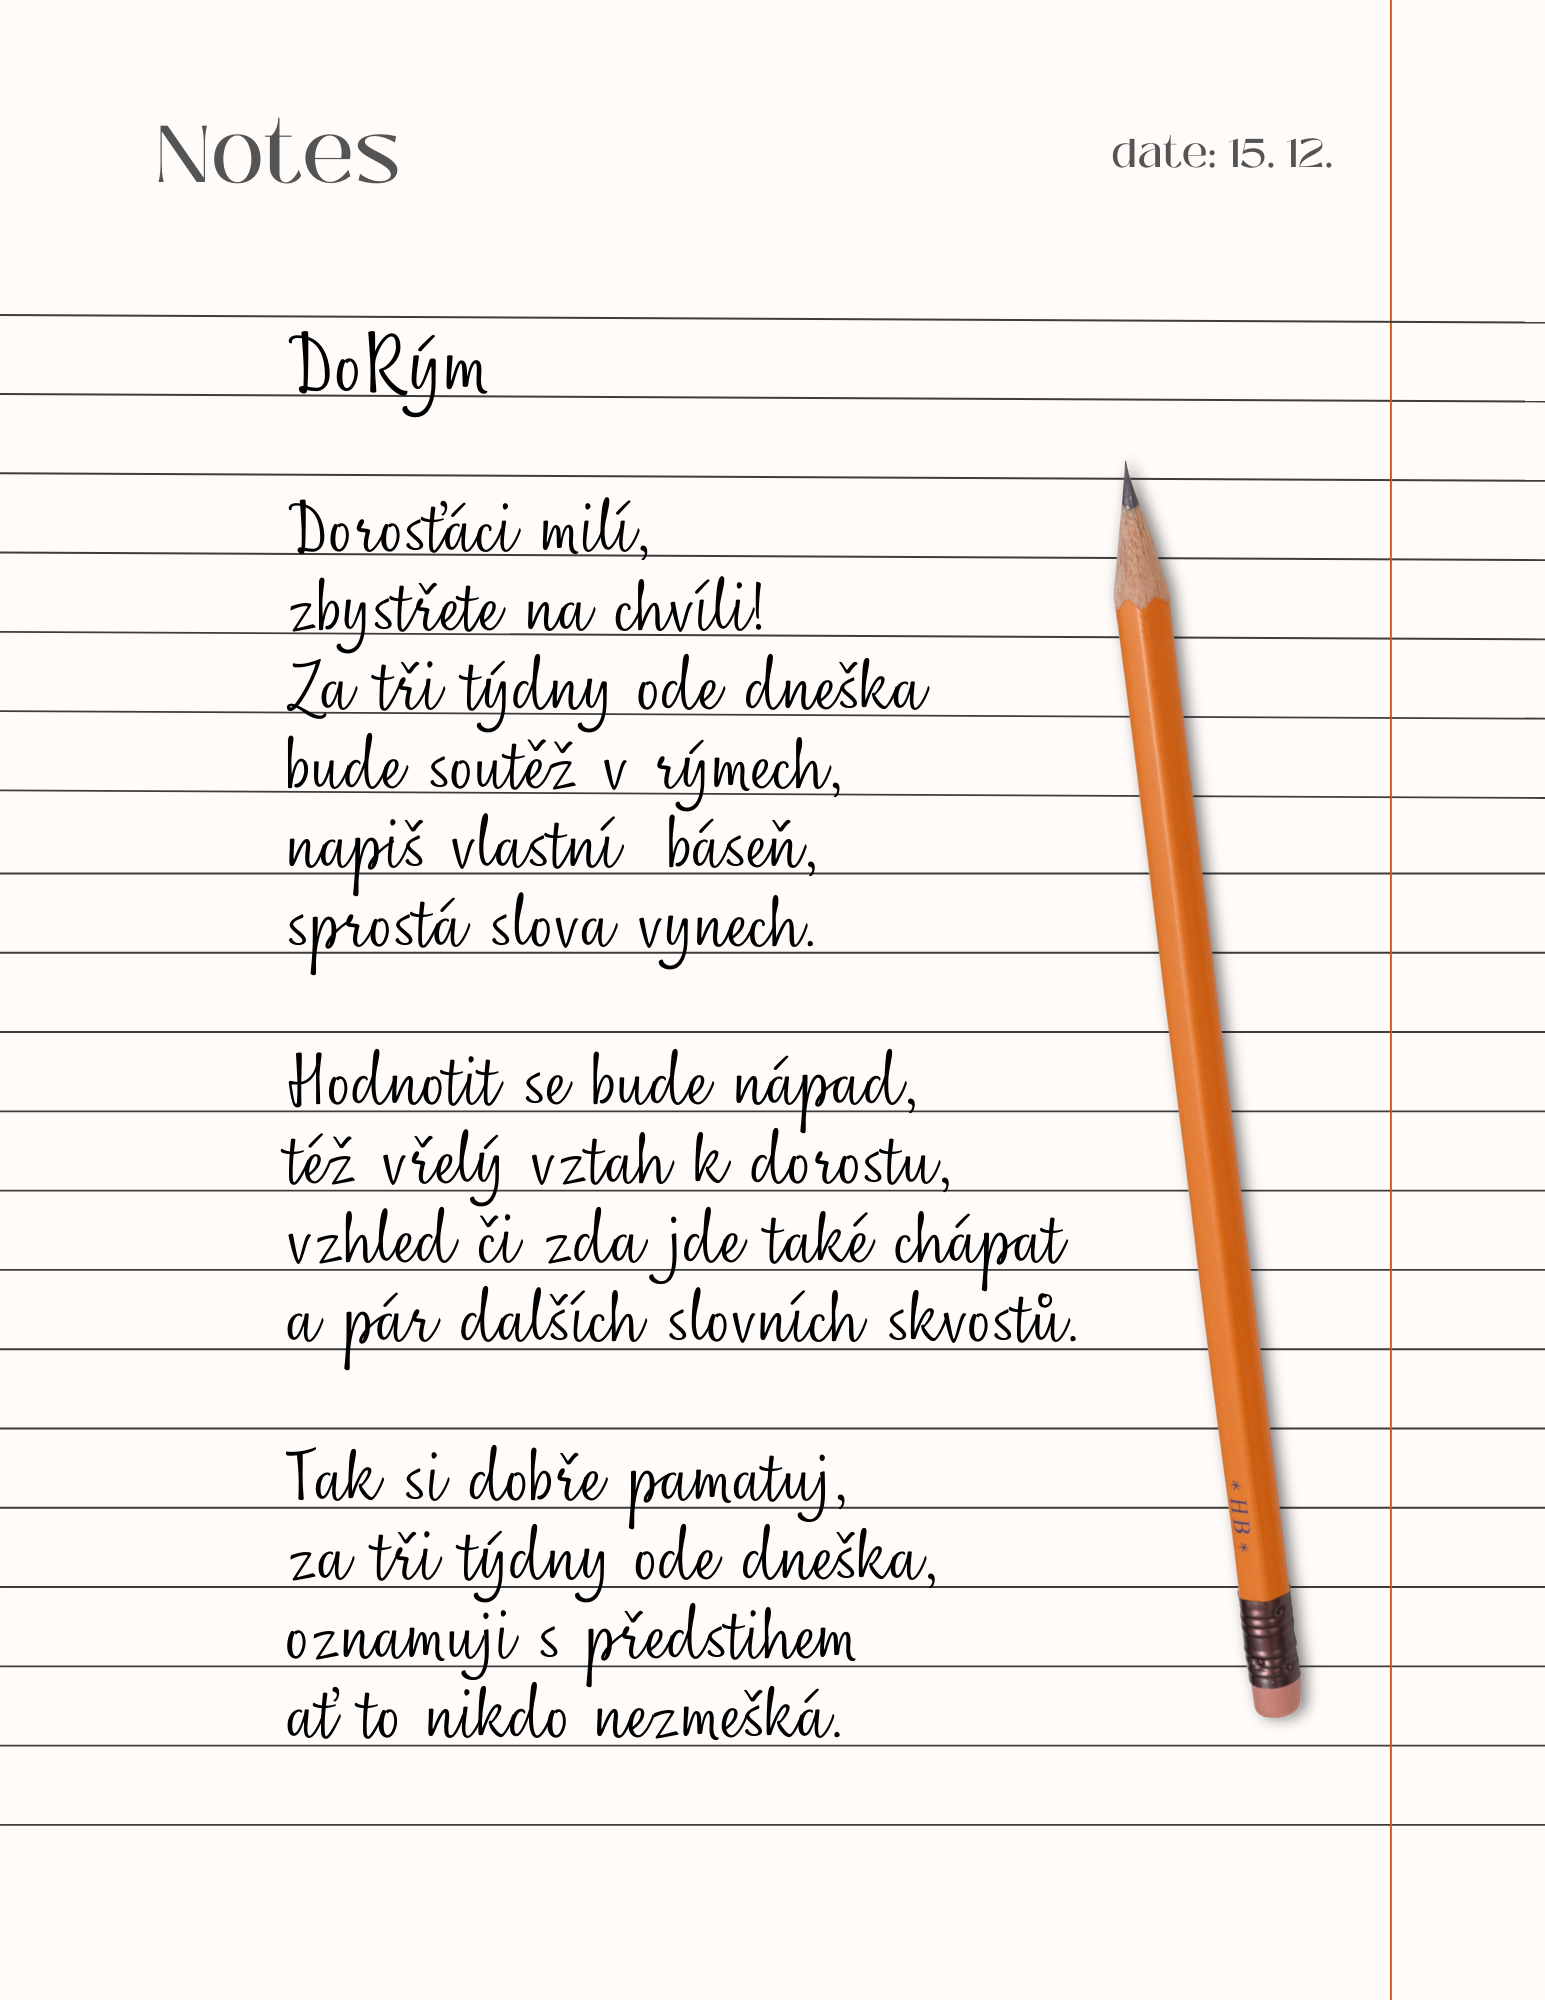 Notes
date: 15. 12.
DoRým
Dorosťáci milí,
zbystřete na chvíli!
Za tři týdny ode dneška
bude soutěž v rýmech,
napiš vlastní báseň,
sprostá slova vynech.
Hodnotit se bude nápad,
též vřelý vztah k dorostu,
vzhled či zda jde také chápat
a pár dalších slovních skvostů.
Tak si dobře pamatuj,
za tři týdny ode dneška,
oznamuji s předstihem
ať to nikdo nezmešká.
* HB *